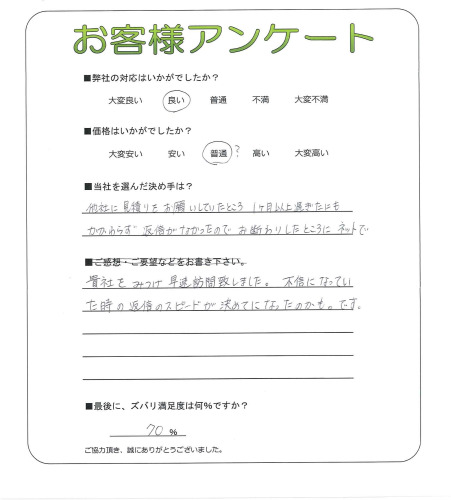 お客様アンケート
■弊社の対応はいかがでしたか？
大変良い 良い 普通 不満 大変不満
■価格はいかがでしたか？
大変安い 安い 普通 ? 高い 大変高い
■当社を選んだ決め手は？
他社に見積りをお願いしていたところ 1ヶ月以上過ぎたにも
かかわらず 返信がなかったので お断わりしたところに ネットで
■ご感想・ご要望などをお書き下さい。
貴社を みつけ 早速 訪問致しました。 不信になってい
た時の 返信のスピードが 決めてになったのかも。です。
■最後に、ズバリ満足度は何％ですか？
70 ％
ご協力頂き、誠にありがとうございました。